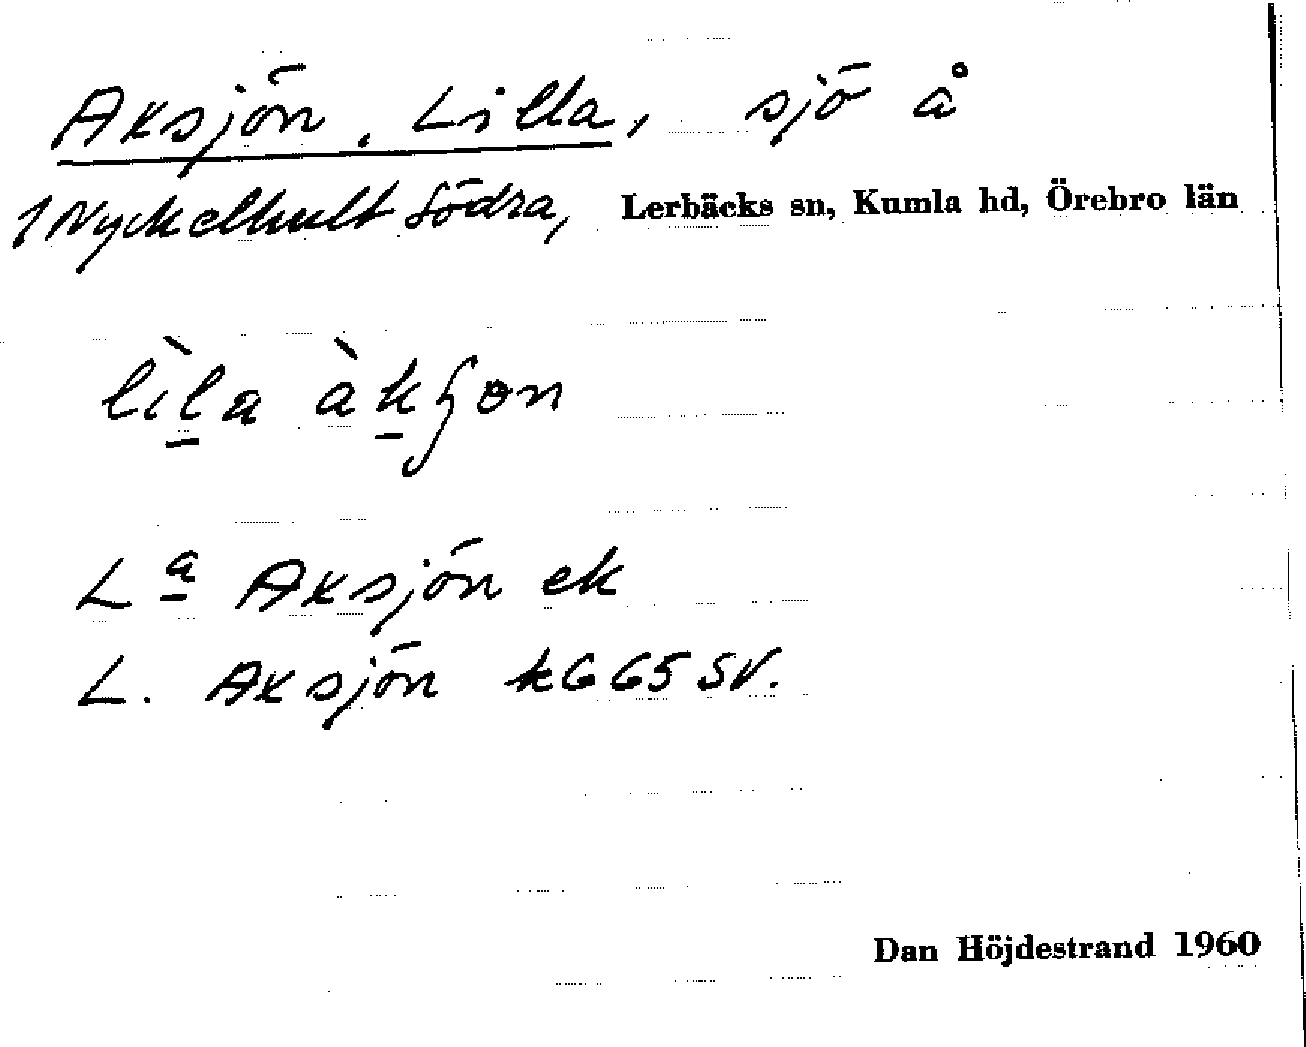 Aksjön, Lilla, sjö å
1 Nyckelhult Södra, Lerbäcks sn, Kumla hd, Örebro län
lìla àkʃon
L<sup>a</sup> Aksjön ek
L. Aksjön k6 65 SV.
Dan Höjdestrand 1960